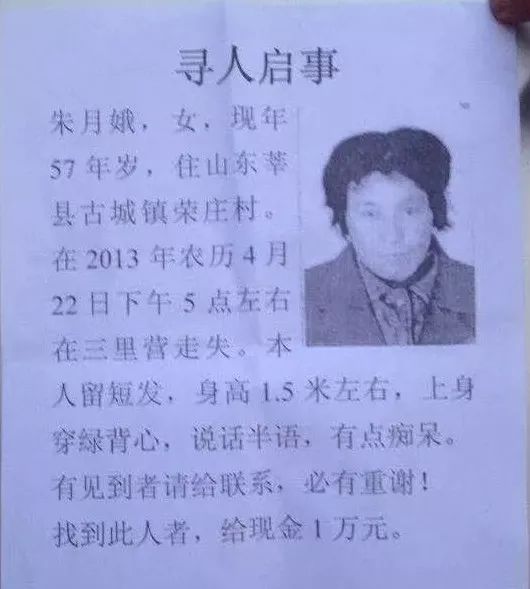 寻人启事
朱月娥，女，现年
57年岁，住山东莘
县古城镇荣庄村。
在2013年农历4月
22日下午5点左右
在三里营走失。本
人留短发，身高1.5米左右，上身
穿绿背心，说话半语，有点痴呆。
有见到者请给联系，必有重谢！
找到此人者，给现金1万元。